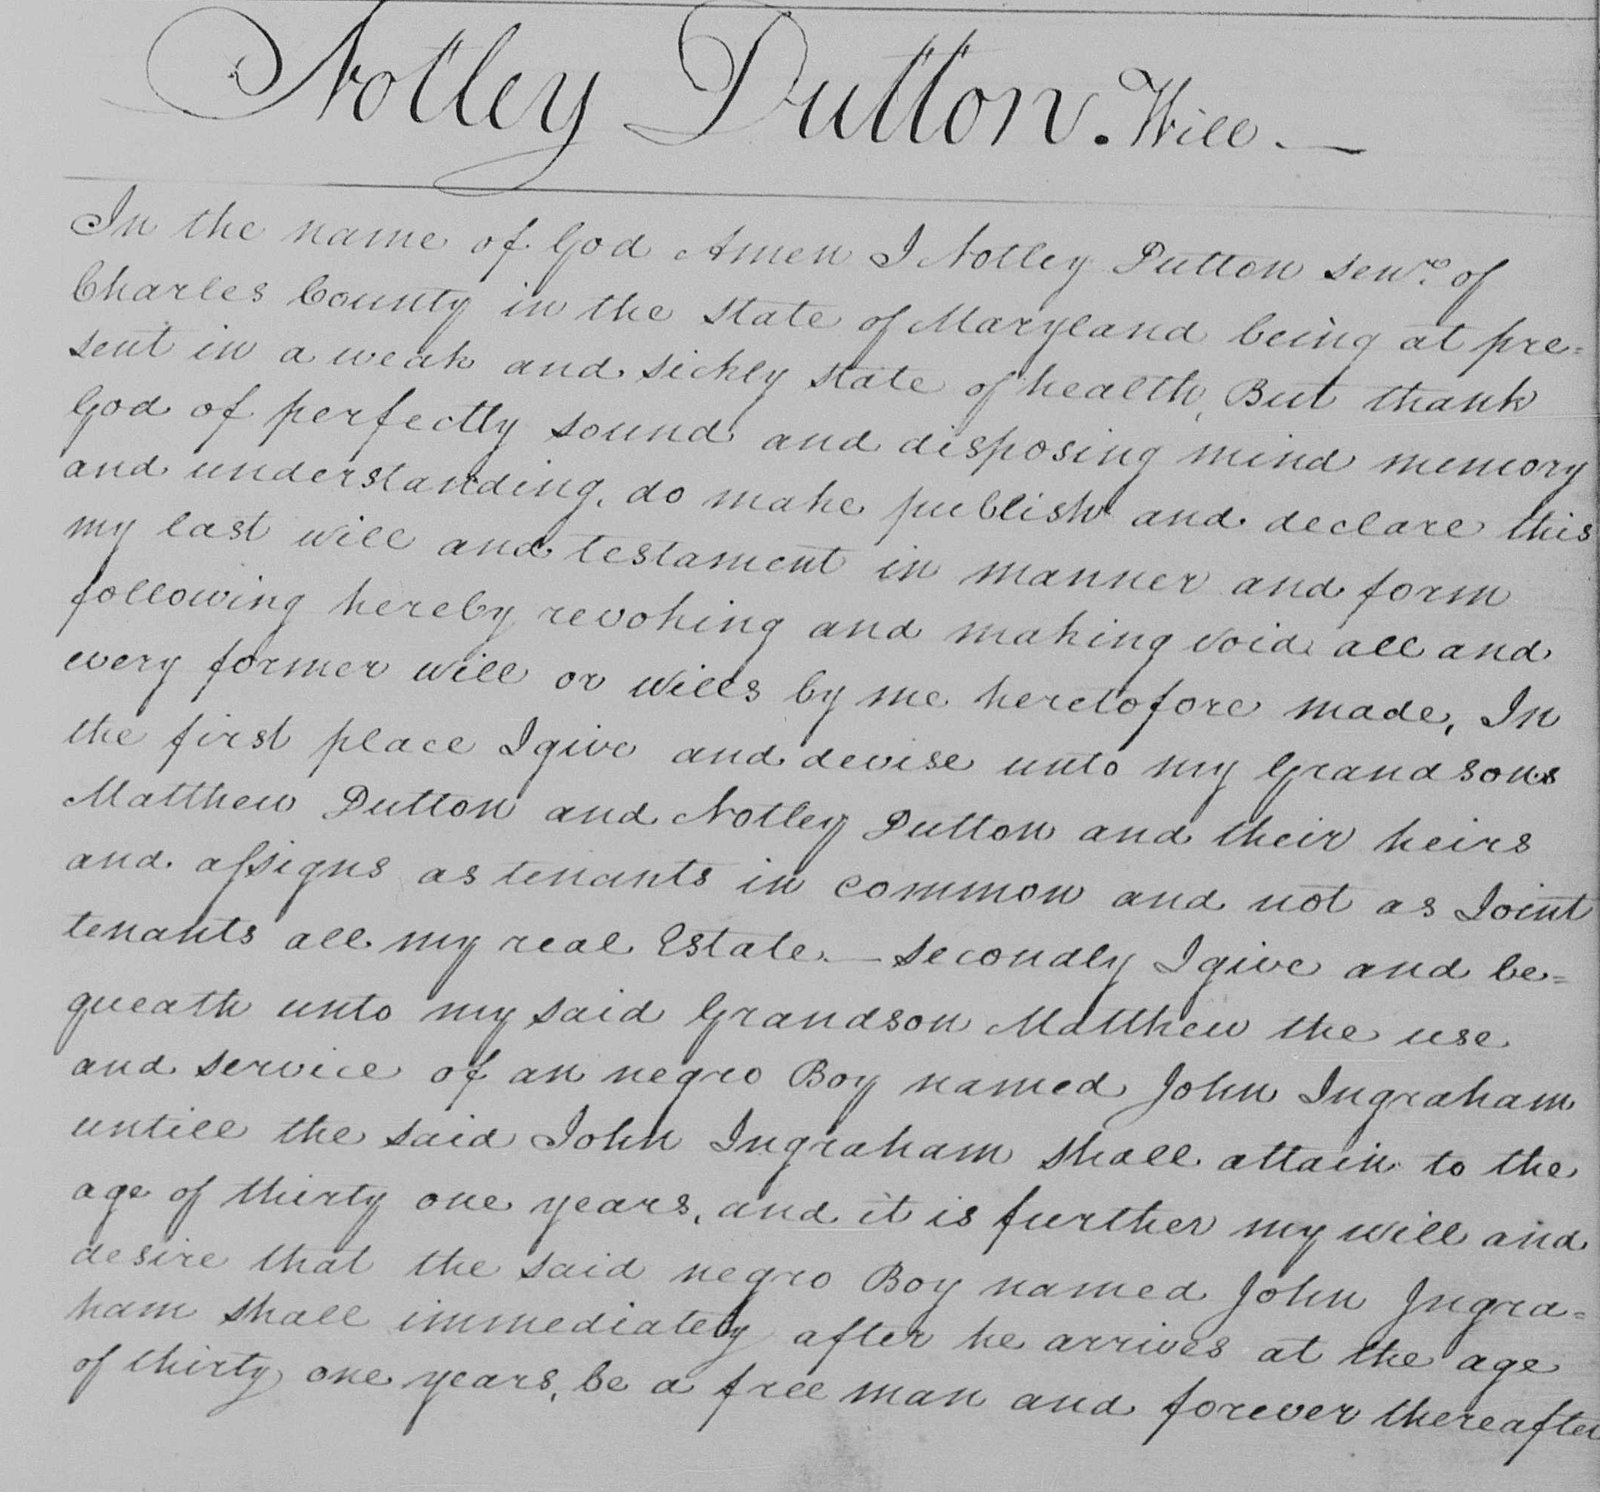 Notley Dutton. Will. —
In the name of God Amen I Notley Dutton senr. of
Charles County in the state of Maryland being at pre=
sent in a weak and sickly state of health, But thank
God of perfectly sound and disposing mind memory
and understanding, do make publish and declare this
my last will and testament in manner and form
following hereby revoking and making void all and
every former will or wills by me heretofore made, In
the first place I give and devise unto my Grand sons
Matthew Dutton and Notley Dutton and their heirs
and assigns as tenants in common and not as Joint
tenants all my real Estate — secondly I give and be=
queath unto my said Grandson Matthew the use
and service of an negro Boy named John Ingraham
untill the said John Ingraham shall attain to the
age of thirty one years, and it is further my will and
desire that the said negro Boy named John Ingra=
ham shall immediately after he arrives at the age
of thirty one years, be a free man and forever thereafter